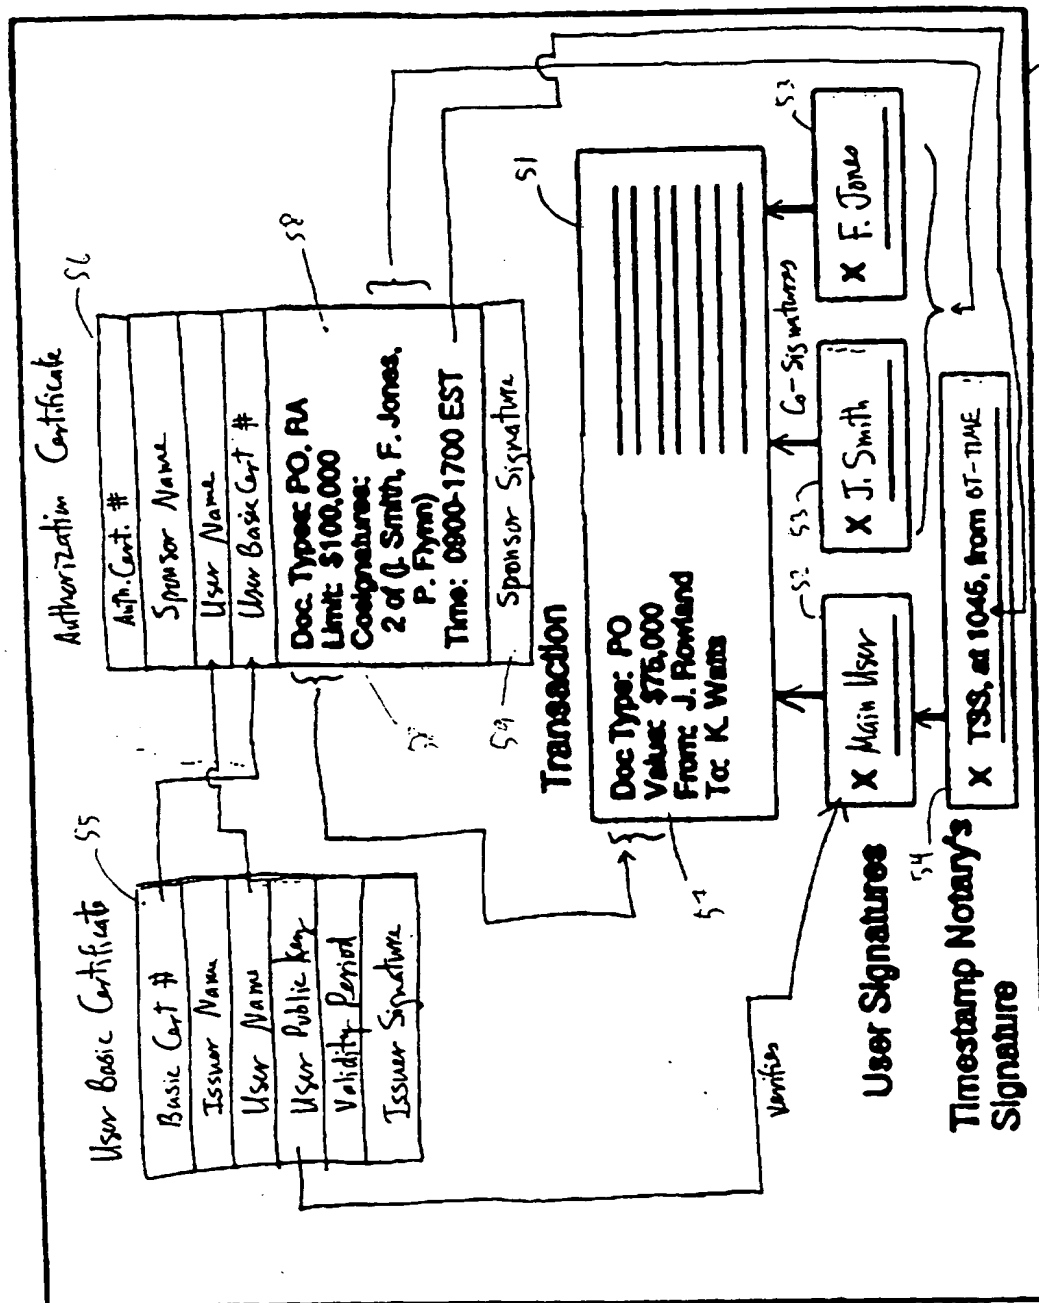 User Basic Certificate
55
Basic Cert #
Issuer Name
User Name
User Public Key
Validity Period
Issuer Signature
Authorization Certificate
56
Auth. Cert. #
Sponsor Name
User Name
User Basic Cert #
Doc. Types: PO, RA
Limit: $100,000
Cosignatures:
2 of (J. Smith, F. Jones,
P. Flynn)
Time: 0900-1700 EST
58
Sponsor Signature
59
Transaction
51
Doc Type: PO
Value: $75,000
From: J. Rowland
To: K. Watts
57
verifies
Co-Signatures
User Signatures
52
X Main User
53
X J. Smith
53
X F. Jones
Timestamp Notary's
Signature
54
X TSS, at 1045, from